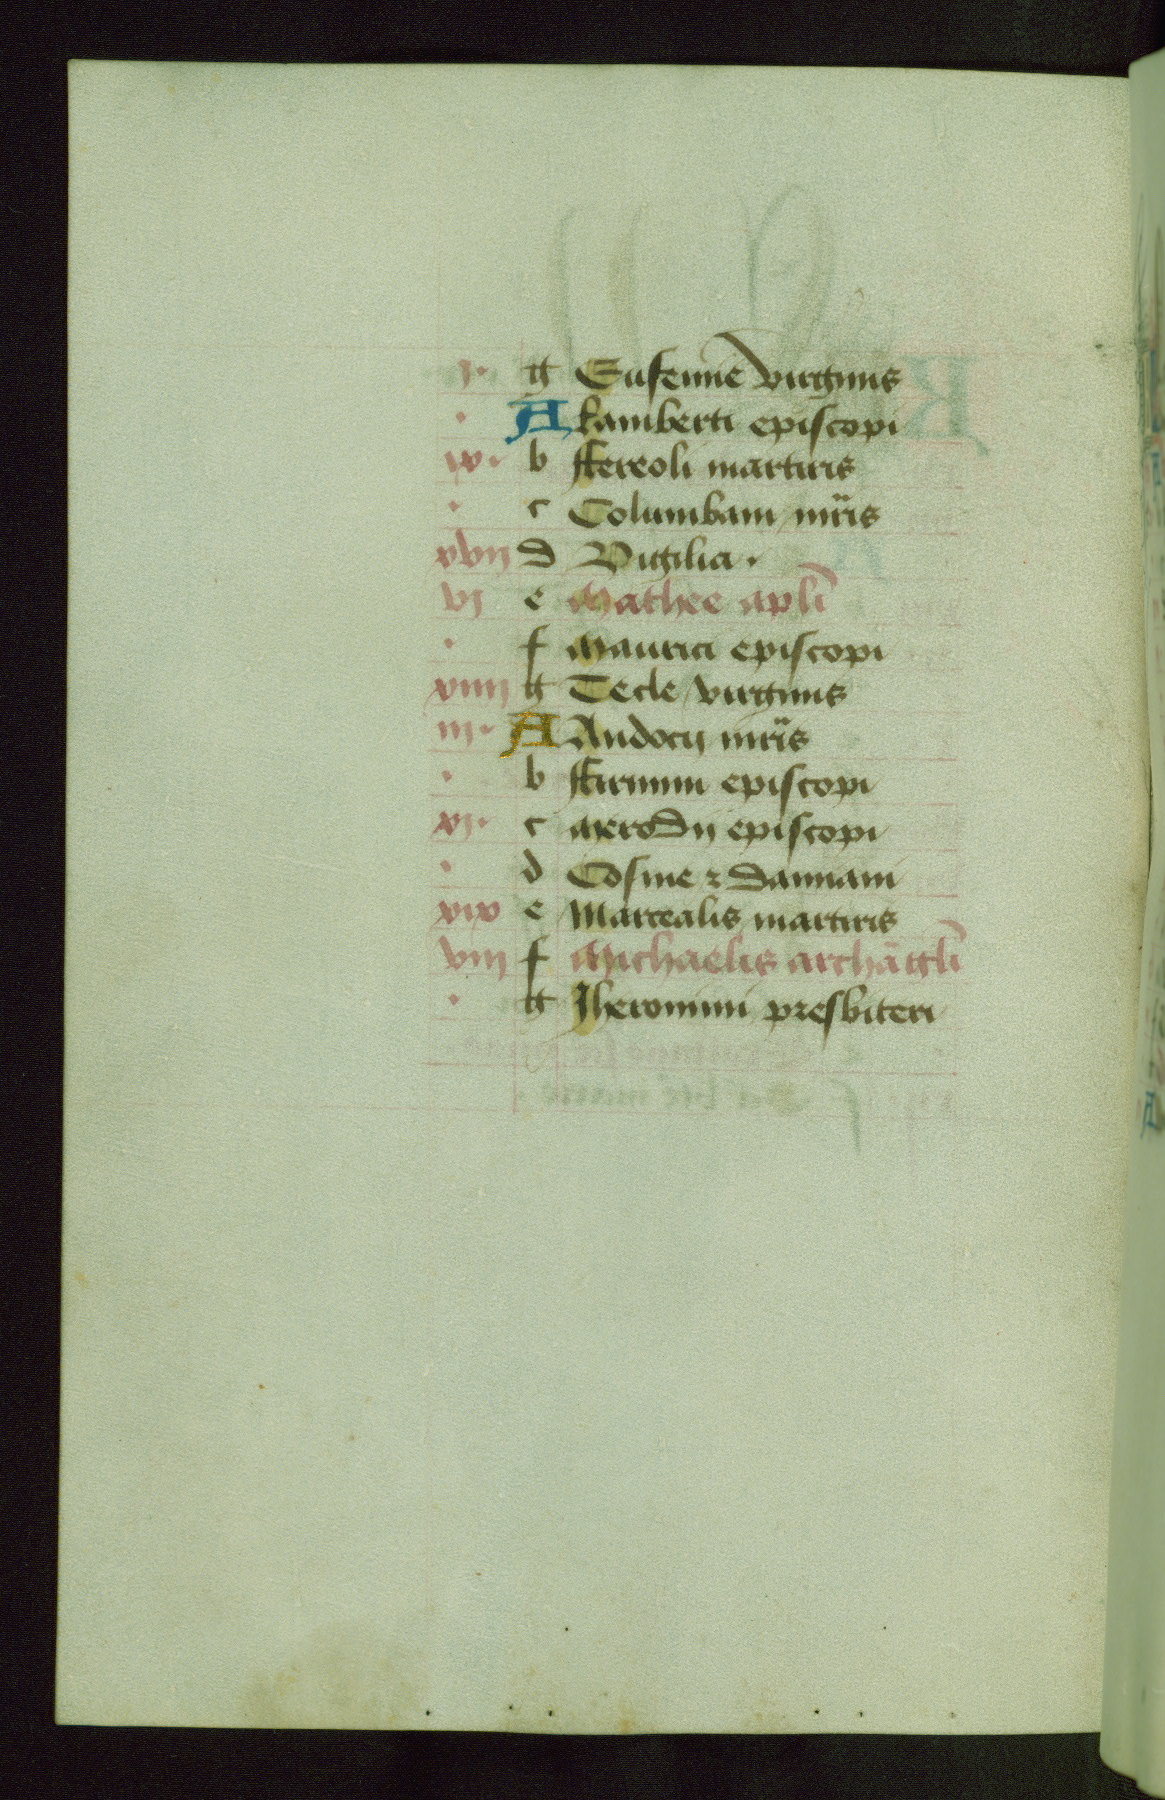 j· g Eufemie virginis
· A lamberti episcopi
ix· b ffereoli martiris
· c Columbani mr̄is
xvij d Vigilia·
vj e Mathee apl̄i
· f Maurici episcopi
xiiij g Tecle virginis
iij· A Andocij mr̄is
· b ffirmini episcopi
xj· c episcopi
· d Cosme ⁊ damiani
xix e Marcealis martiris
viij f Michaelis archāgl̄i
· g Jheronimi presbiteri